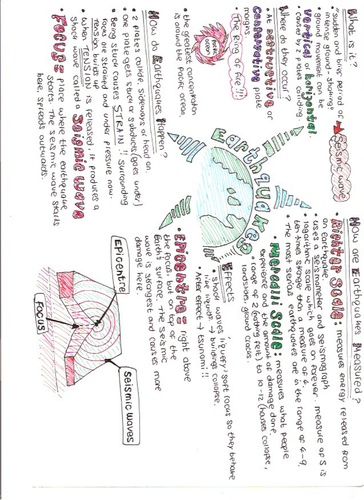 What is it?
"sudden and brief period of
intense ground-shaking"
ground movement can be
vertical or horizontal
caused by plates sliding
Seismic wave
Where do they occur?
At DESTRUCTIVE or
CONSERVATIVE plate
The Ring of Fire!!!
PACIFIC OCEAN
• the greatest concentration
is around the Pacific area.
Earthquakes
How do Earthquakes Happen?
• 2 plates collide sideways or head on
• one plate gets stuck or subducts (goes under)
• Being stuck causes STRAIN!! Surrounding
rocks are strained and under pressure now.
Tension builds up
• when TENSION is released - it produces a
shock wave called a SEISMIC WAVE
FOCUS = place where the earthquake
starts. The seismic wave starts
here, spreads outwards.
How are Earthquakes Measured?
Richter Scale: measures energy released from
an earthquake
• uses a seismometer and seismograph
• logarithmic scale which goes on forever. measure of 5 is
ten times stronger than a measure of 4.
• The most serious earthquakes are in the range of 6-9.
Mercalli Scale: measures what people
experience and the amount of damage done
• scale of 2 (nothing felt) to 10-12 (houses collapse,
landslides, ground cracks.
Effects
• Shock waves liquefy soft rocks so they behave
like liquid → buildings collapse.
• After effect → tsunami!!
Epicentre = right above
the focus, but on top of the
Earth's surface. The seismic
wave is strongest and causes more
damage here.
EPICENTRE
FOCUS
SEISMIC WAVES